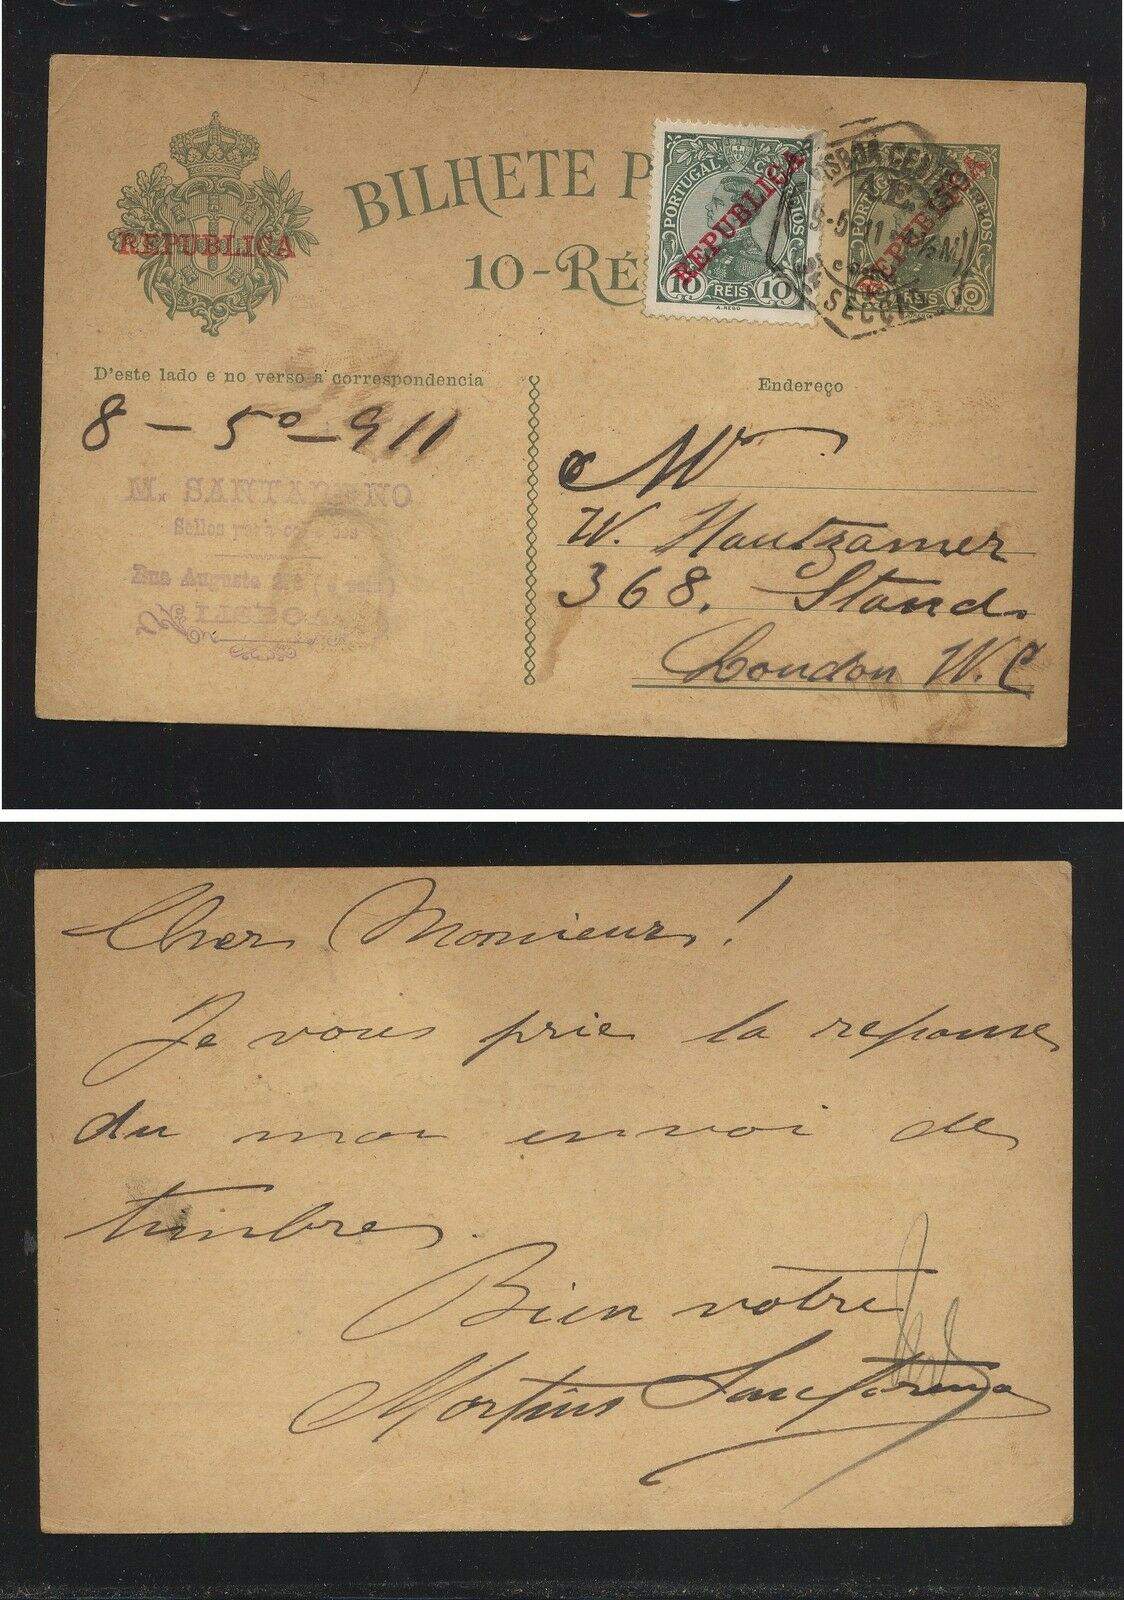 REPUBLICA
BILHETE P
10-RÉ
PORTUGAL CORREIOS
REPUBLICA
10 RÉIS 10
A. REGO
LISBOA CENTRAL
5-5 11
SECÇÃO
REPUBLICA
RÉIS 10
D'este lado e no verso a correspondencia
Endereço
8 - 5º - 911
M. SANTARENO
Sellos para
Rua Augusta
Mr
W. Hautzamer
368, Stand
London W.C
Cher Monsieur!
Je vous prie la reponse
du mon envoi de
timbres.
Bien votre
Martins Santareno